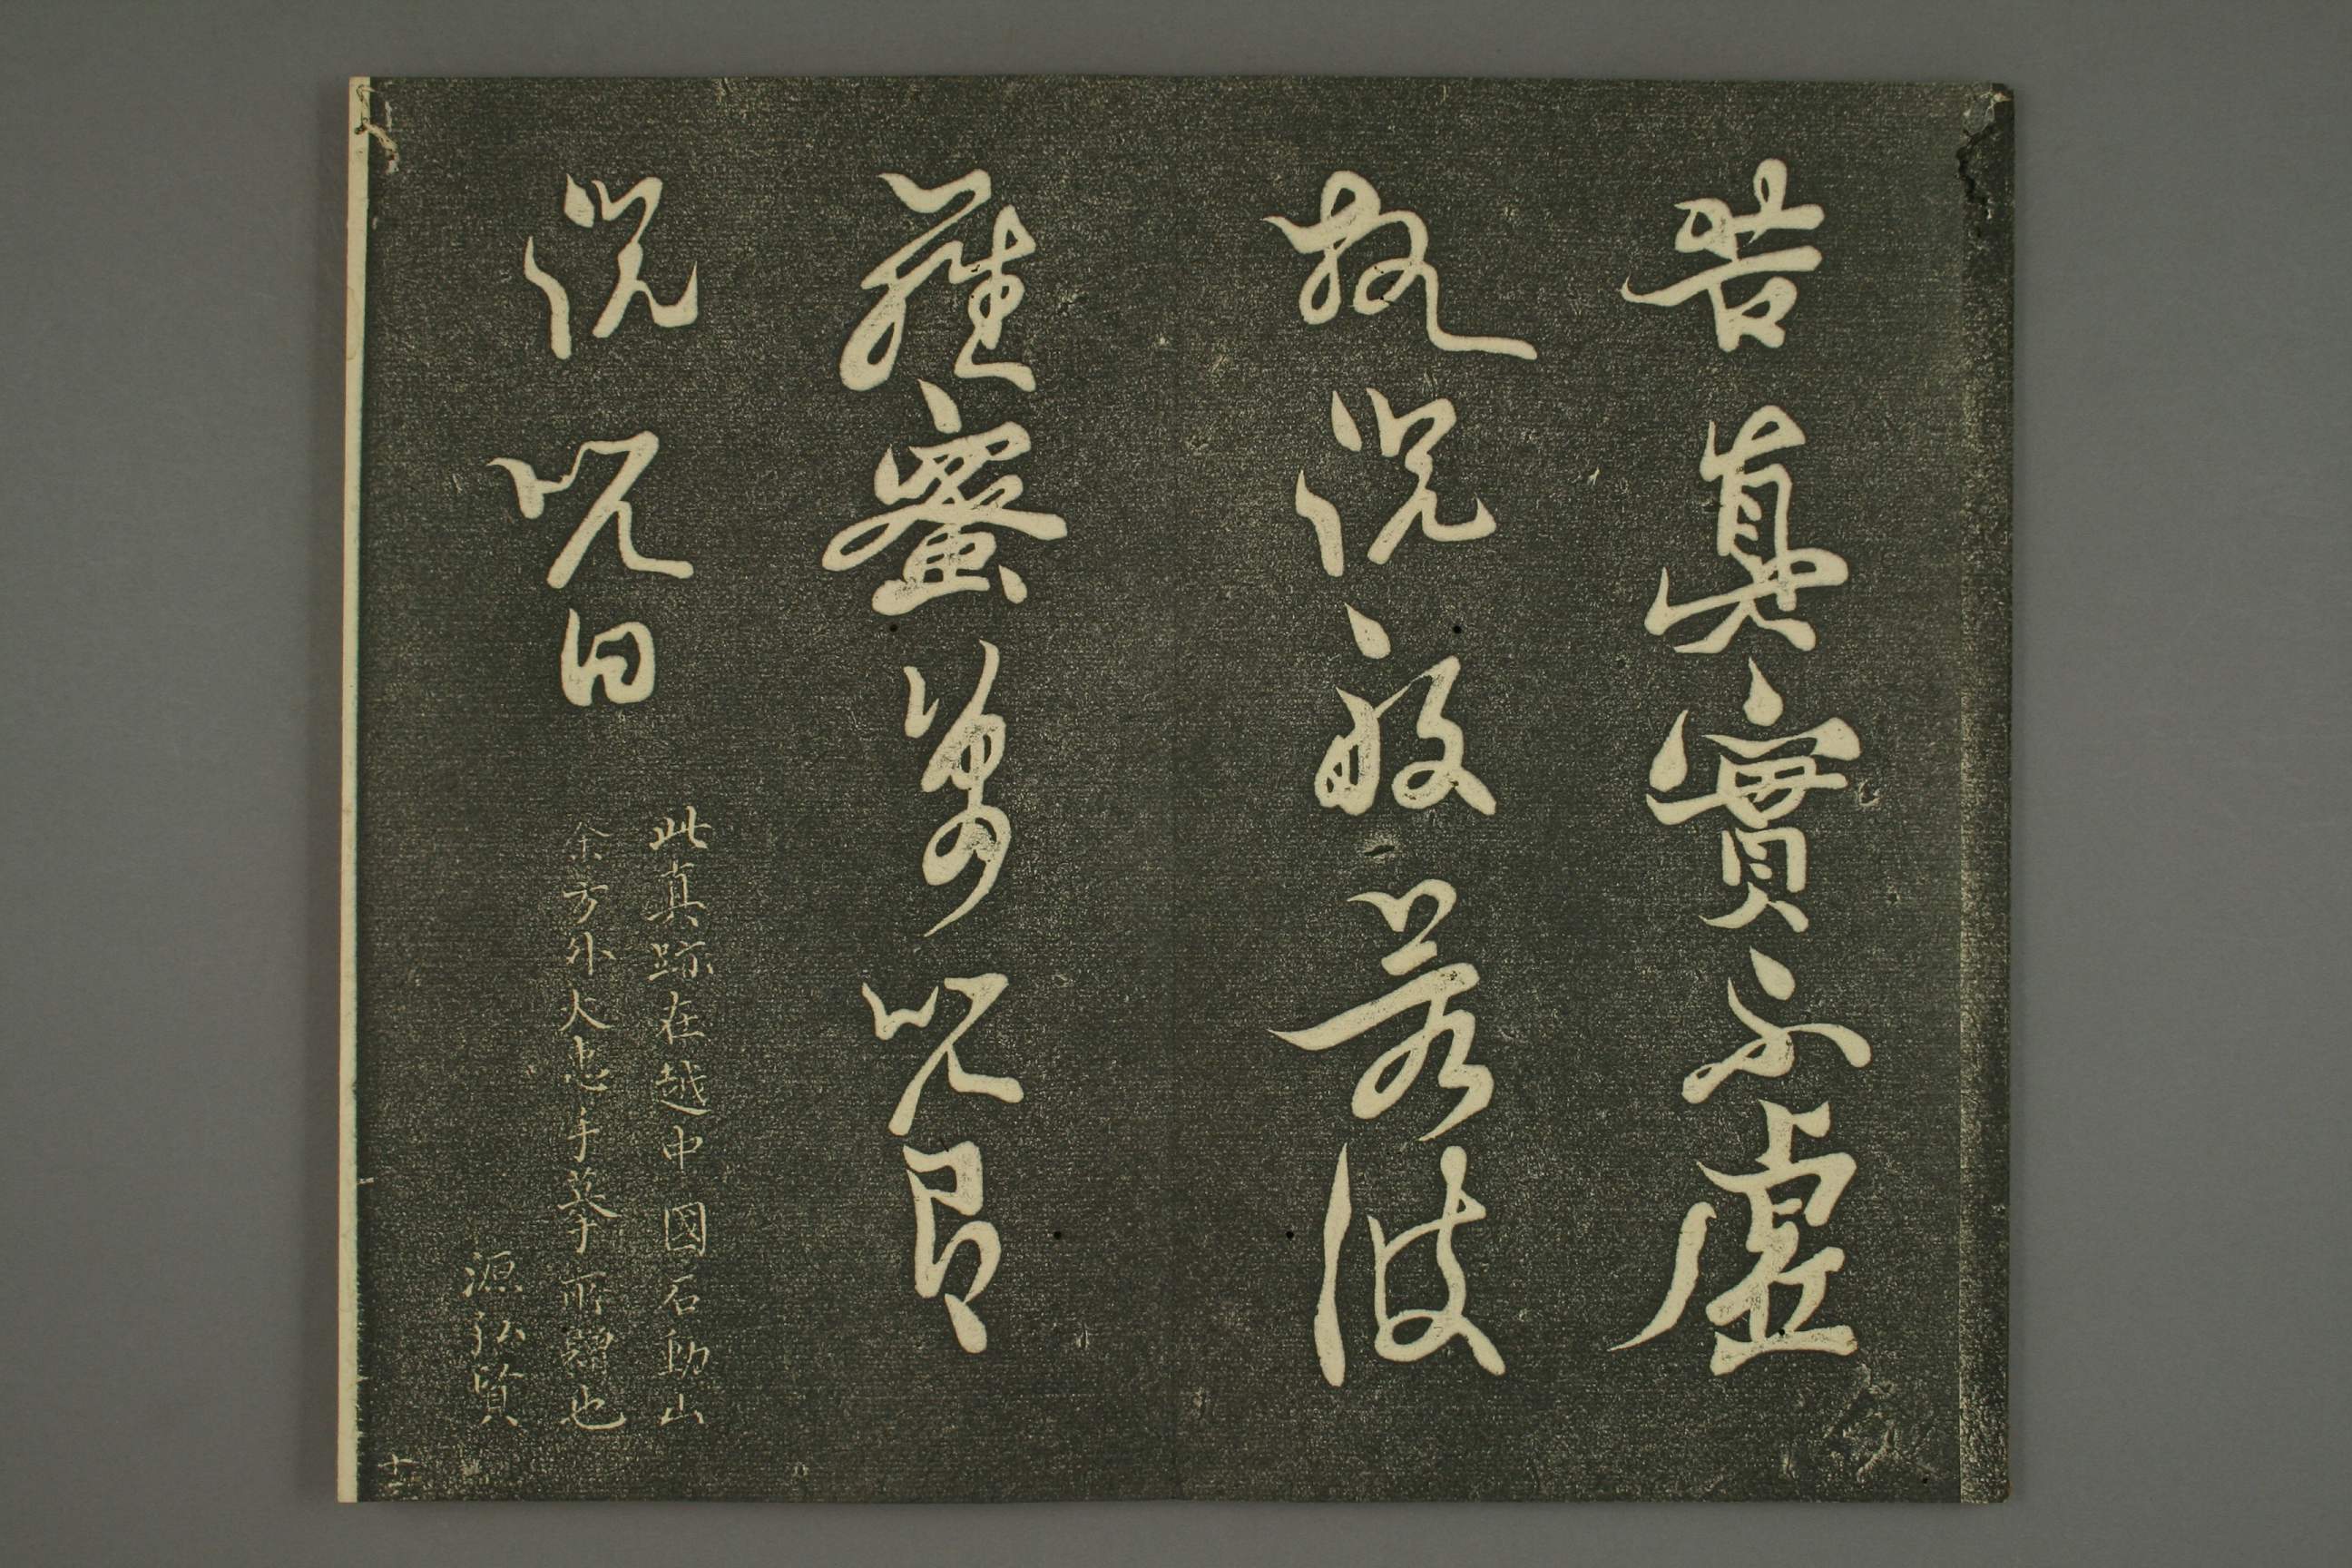 苦真實不虛
故說般若波
羅蜜多呪即
說呪曰
此真跡在越中國石動山
余方外大手摹所鐫也
源弘賢